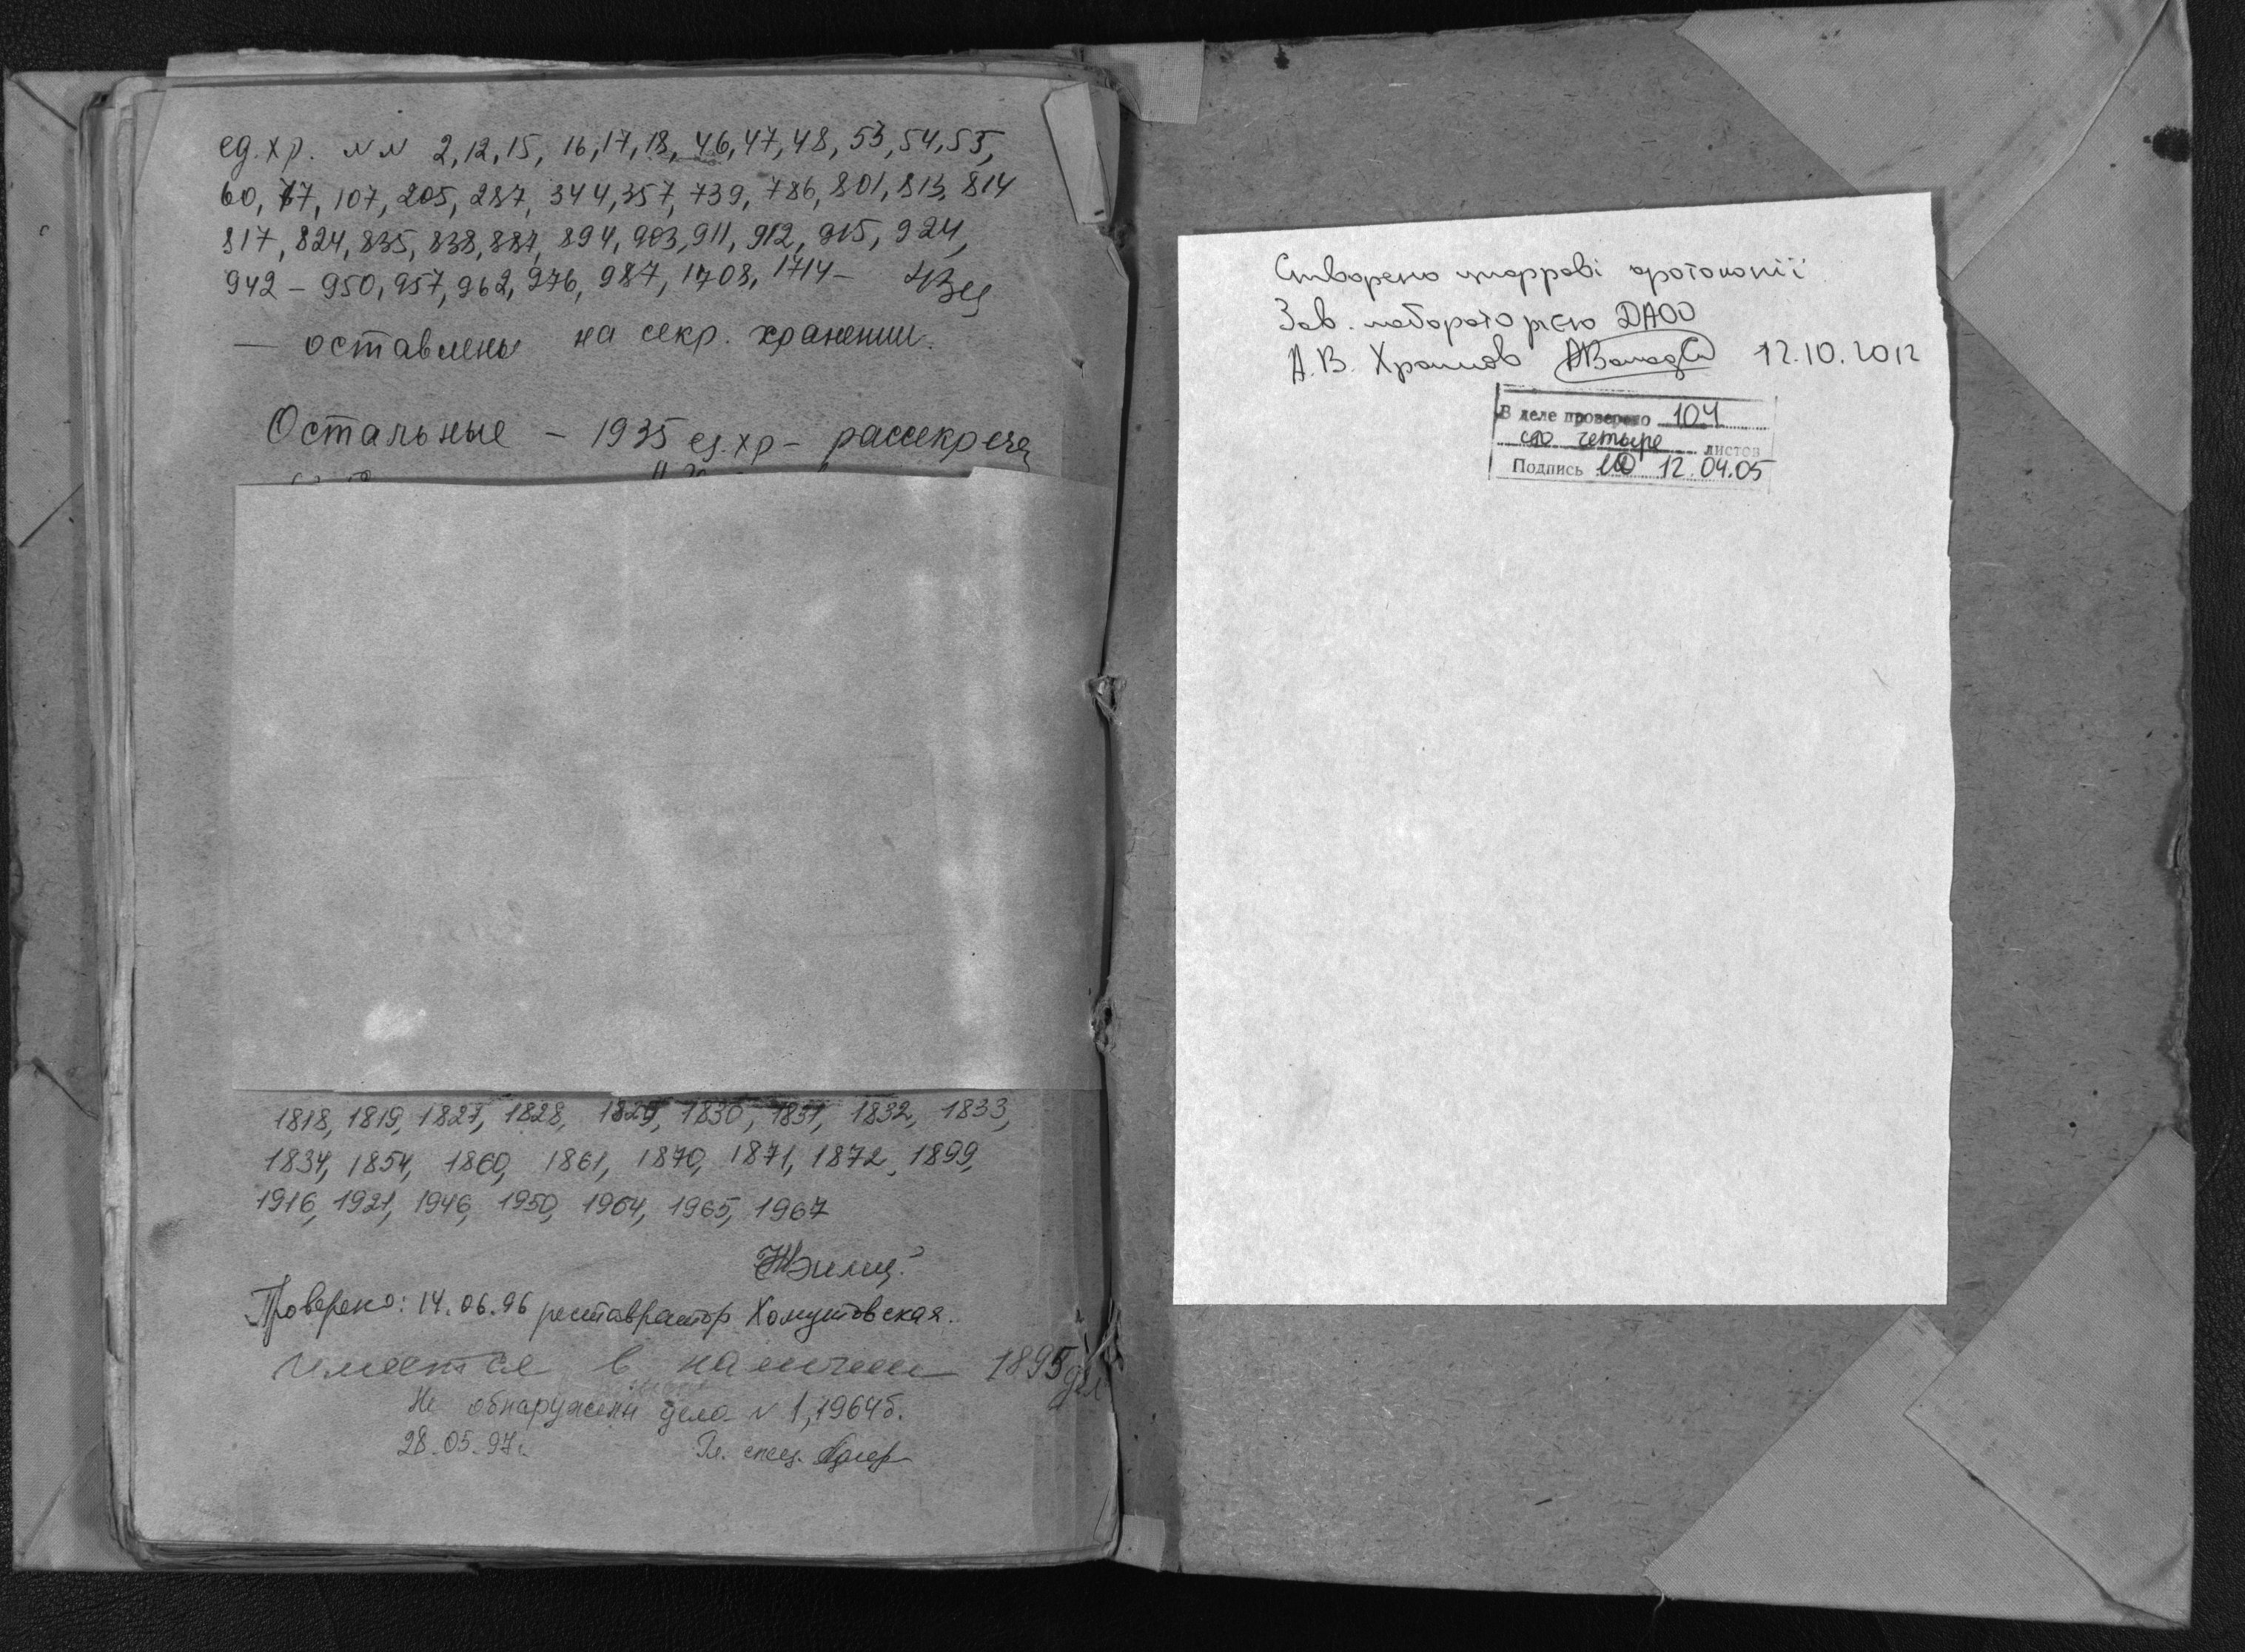 ед.хр. №№ 2,12,15, 16,17,18, 46,47,48, 53,54,55,
60, 77, 107, 205, 287, 344,357, 739, 786, 801, 813, 814
817, 824, 835, 838, 887, 894, 903, 911, 912, 915, 924,
942 – 950, 957, 962, 976, 987, 1708, 1714 –
— оставлены на секр. хранении.
Остальные – 1935 ед.хр – рассекрече
1818, 1819, 1827, 1828, 1829, 1830, 1831, 1832, 1833,
1834, 1854, 1860, 1861, 1870, 1871, 1872, 1899,
1916, 1921, 1946, 1950, 1964, 1965, 1967
Проверено: 14.06.96 реставратор Хомутовская.
имеется в наличии 1895 дел
Не обнаружены дела № 1, 1964б.
28.05.97г. Гл. спец.
Створено цифрові фотокопії
Зав. лабораторією ДАОО
А.В. Храмов 12.10.2012
В деле проверено 104
сто четыре листов
Подпись 12.04.05